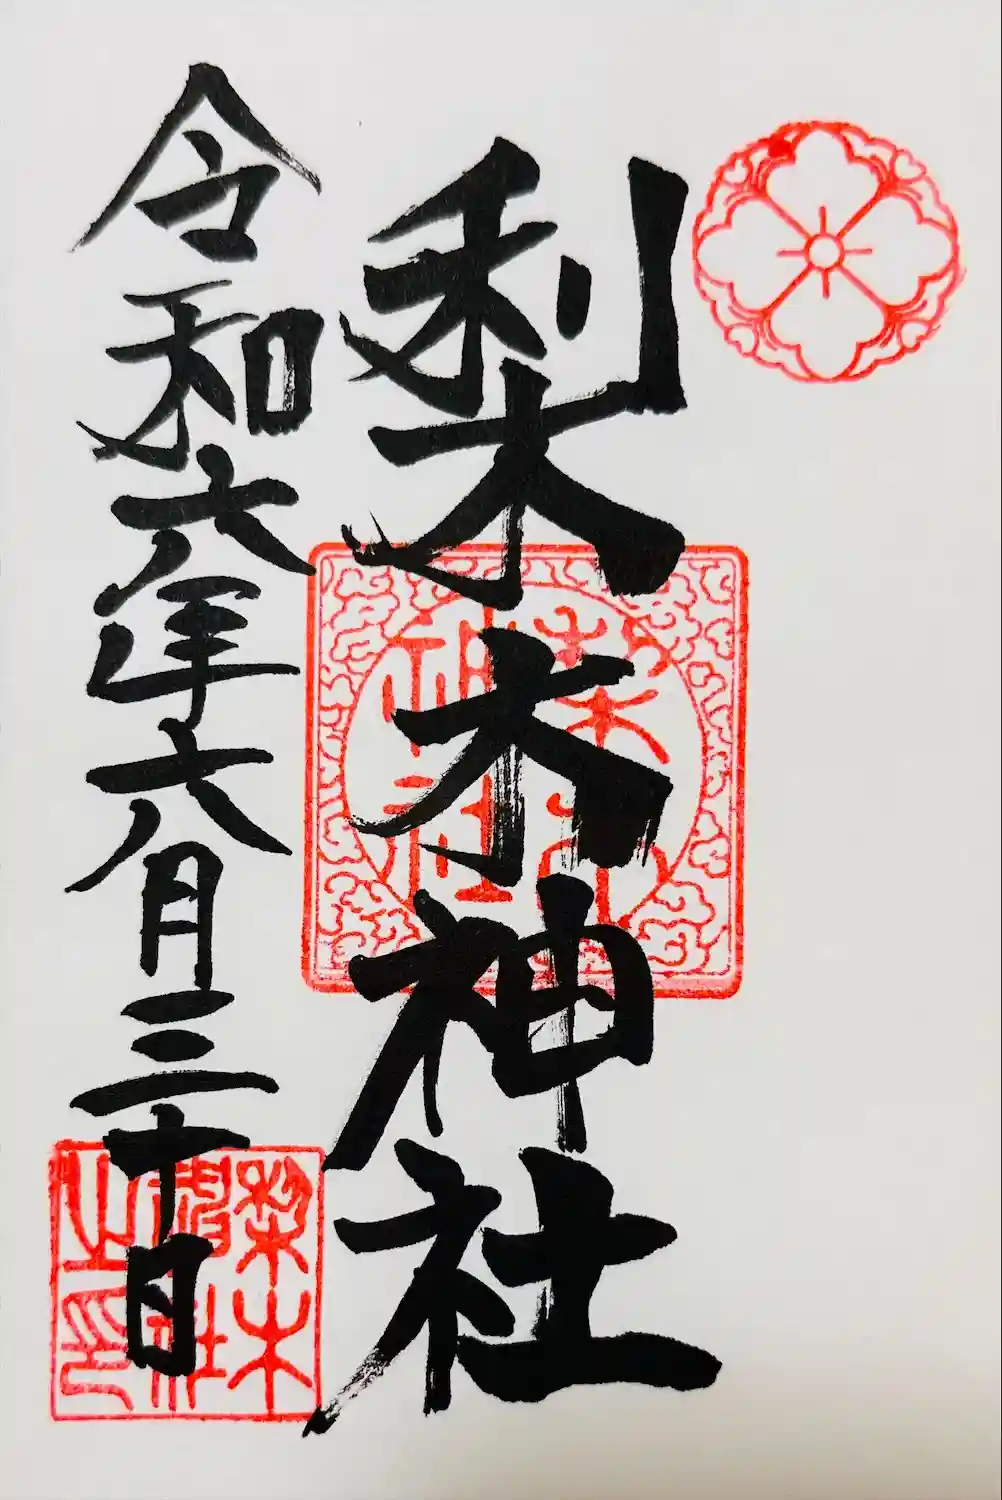 梨木神社
令和六年六月三十日
梨木神社
梨木神社之印